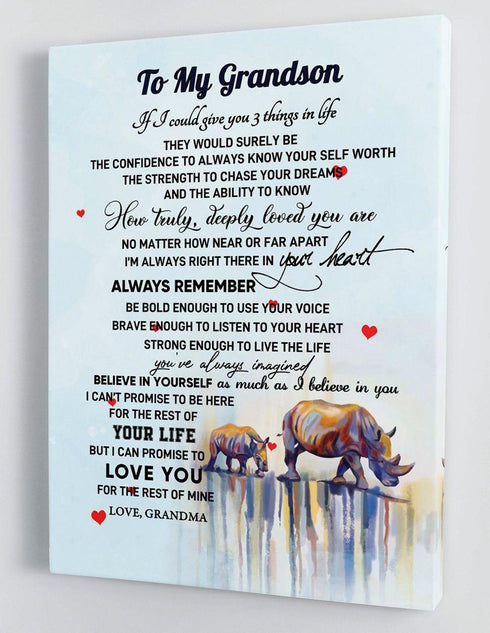 To My Grandson
If I could give you 3 things in life
THEY WOULD SURELY BE
THE CONFIDENCE TO ALWAYS KNOW YOUR SELF WORTH
THE STRENGTH TO CHASE YOUR DREAMS
AND THE ABILITY TO KNOW
How truly, deeply loved you are
NO MATTER HOW NEAR OR FAR APART
I'M ALWAYS RIGHT THERE IN your heart
ALWAYS REMEMBER
BE BOLD ENOUGH TO USE YOUR VOICE
BRAVE ENOUGH TO LISTEN TO YOUR HEART
STRONG ENOUGH TO LIVE THE LIFE
you've always imagined
BELIEVE IN YOURSELF as much as I believe in you
I CAN'T PROMISE TO BE HERE
FOR THE REST OF
YOUR LIFE
BUT I CAN PROMISE TO
LOVE YOU
FOR THE REST OF MINE
LOVE, GRANDMA